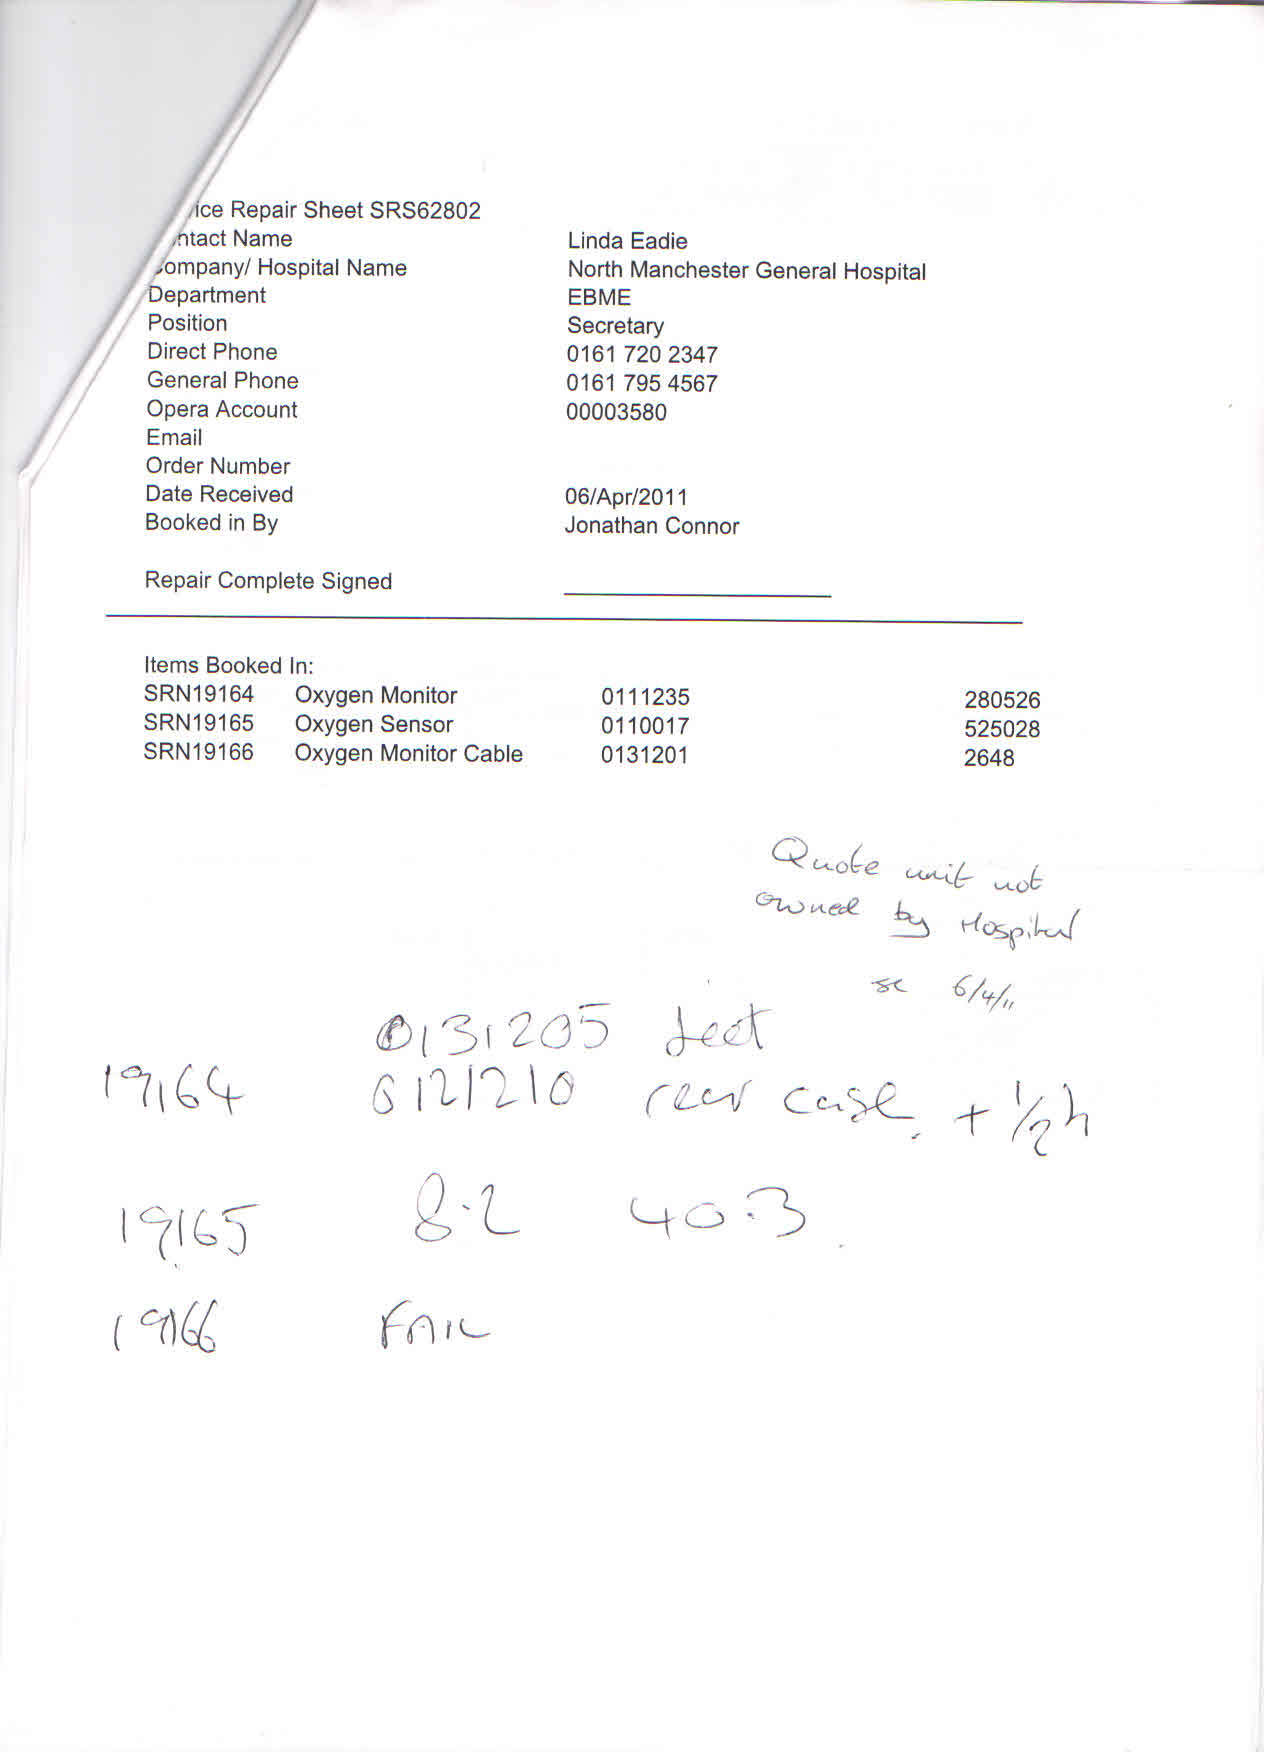 ice Repair Sheet SRS62802
ntact Name Linda Eadie
ompany/ Hospital Name North Manchester General Hospital
Department EBME
Position Secretary
Direct Phone 0161 720 2347
General Phone 0161 795 4567
Opera Account 00003580
Email
Order Number
Date Received 06/Apr/2011
Booked in By Jonathan Connor
Repair Complete Signed
Items Booked In:
SRN19164 Oxygen Monitor 0111235 280526
SRN19165 Oxygen Sensor 0110017 525028
SRN19166 Oxygen Monitor Cable 0131201 2648
Quote unit not
owned by Hospital
6/4/11
0131205 feet
19164 0121210 rear case + 1/2 h
19165 8.2 40.3
19166 FAIL